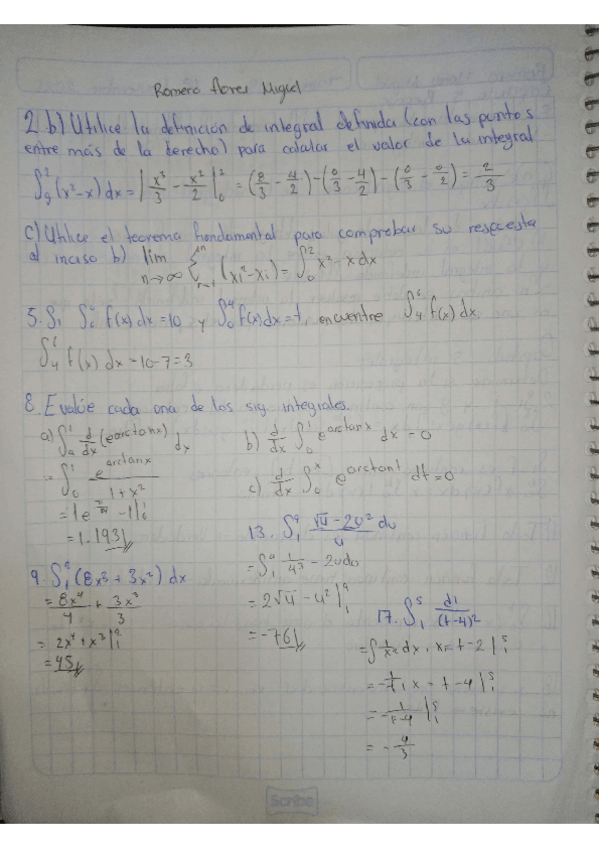 Romero flores Miguel
2.b) Utilice la definición de integral definida (con las puntos
entre más de la derecho) para calular el valor de la integral
∫₀² (x²-x) dx = | x³/3 - x²/2 |₀² = (8/3 - 4/2) - (0/3 - 4/2) - (0/3 - 0/2) = 2/3
c) Utilice el teorema fundamental para comprobar su respuesta
al inciso b) lim n→∞ Σ (xi²-xi) = ∫₀² x²-x dx
5. Si ∫₀⁶ f(x) dx = 10 y ∫₀⁴ f(x) dx = 7, encuentre ∫₄⁶ f(x) dx
∫₄⁶ f(x) dx = 10-7 = 3
8. Evalúe cada una de los sig. integrales.
a) ∫₀¹ d/dx (e arctanx) dx
= ∫₀¹ e^arctanx / 1+x²
= 1.193
b) d/dx ∫₀¹ e^arctanx dx = 0
c) d/dx ∫₀ˣ e^arctant dt = 0
9. ∫₁ (8x³ + 3x²) dx
= 8x⁴/4 + 3x³/3
= 2x⁴ + x³ |₁
= 45
13. ∫₁⁹ √u - 2u² / u du
= 2√u - u² |₁⁹
= -76
17. ∫₁⁵ dt / (t-4)²
= - 1/t-4 |₁⁵
= - 4/3
Scribe